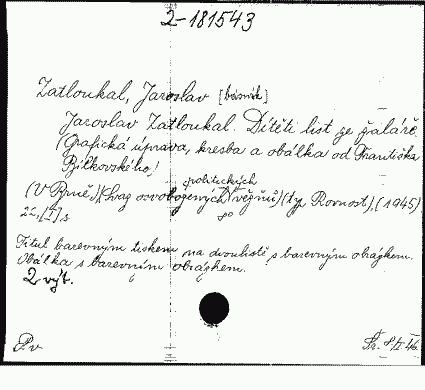 2-181543
Zatloukal, Jaroslav [básník]
Jaroslav Zatloukal. Dítěti list ze žaláře.
(Grafická úprava, kresba a obálka od Františka
Bílkovského.)
politických
(V Brně,) (Svaz osvobozených vězňů) (typ. Rovnost), (1945)
8°
Titul barevným tiskem na dvoulistě s barevným obrázkem.
Obálka s barevným obrázkem.
2 výt.